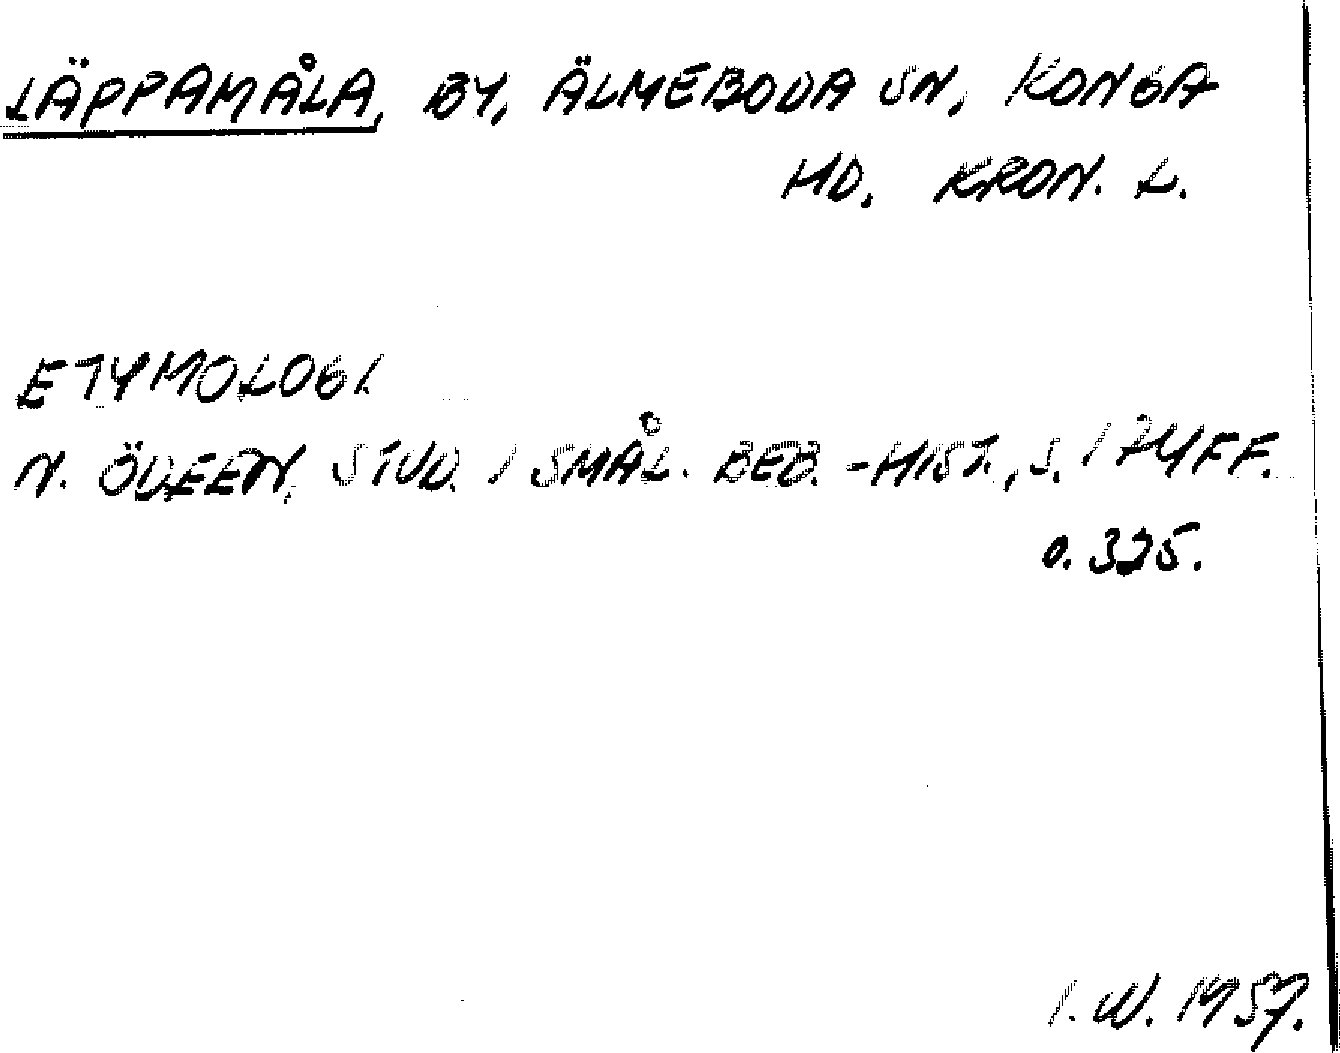 LÄPPAMÅLA, BY, ÄLMEBODA SN, KONGA
HD, KRON. L.
ETYMOLOGI
N. ÖDEEN, STUD. I SMÅL. BEB.-HIST., S. 174FF.
O. 325.
I. W. 1957.